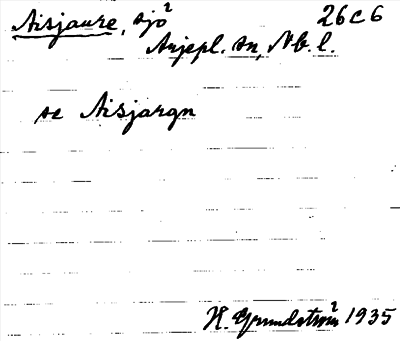 Aisjaure, sjö² 26c6
Arjepl. sn, Nb. l.
se Aisjargn
H. Grundström² 1935